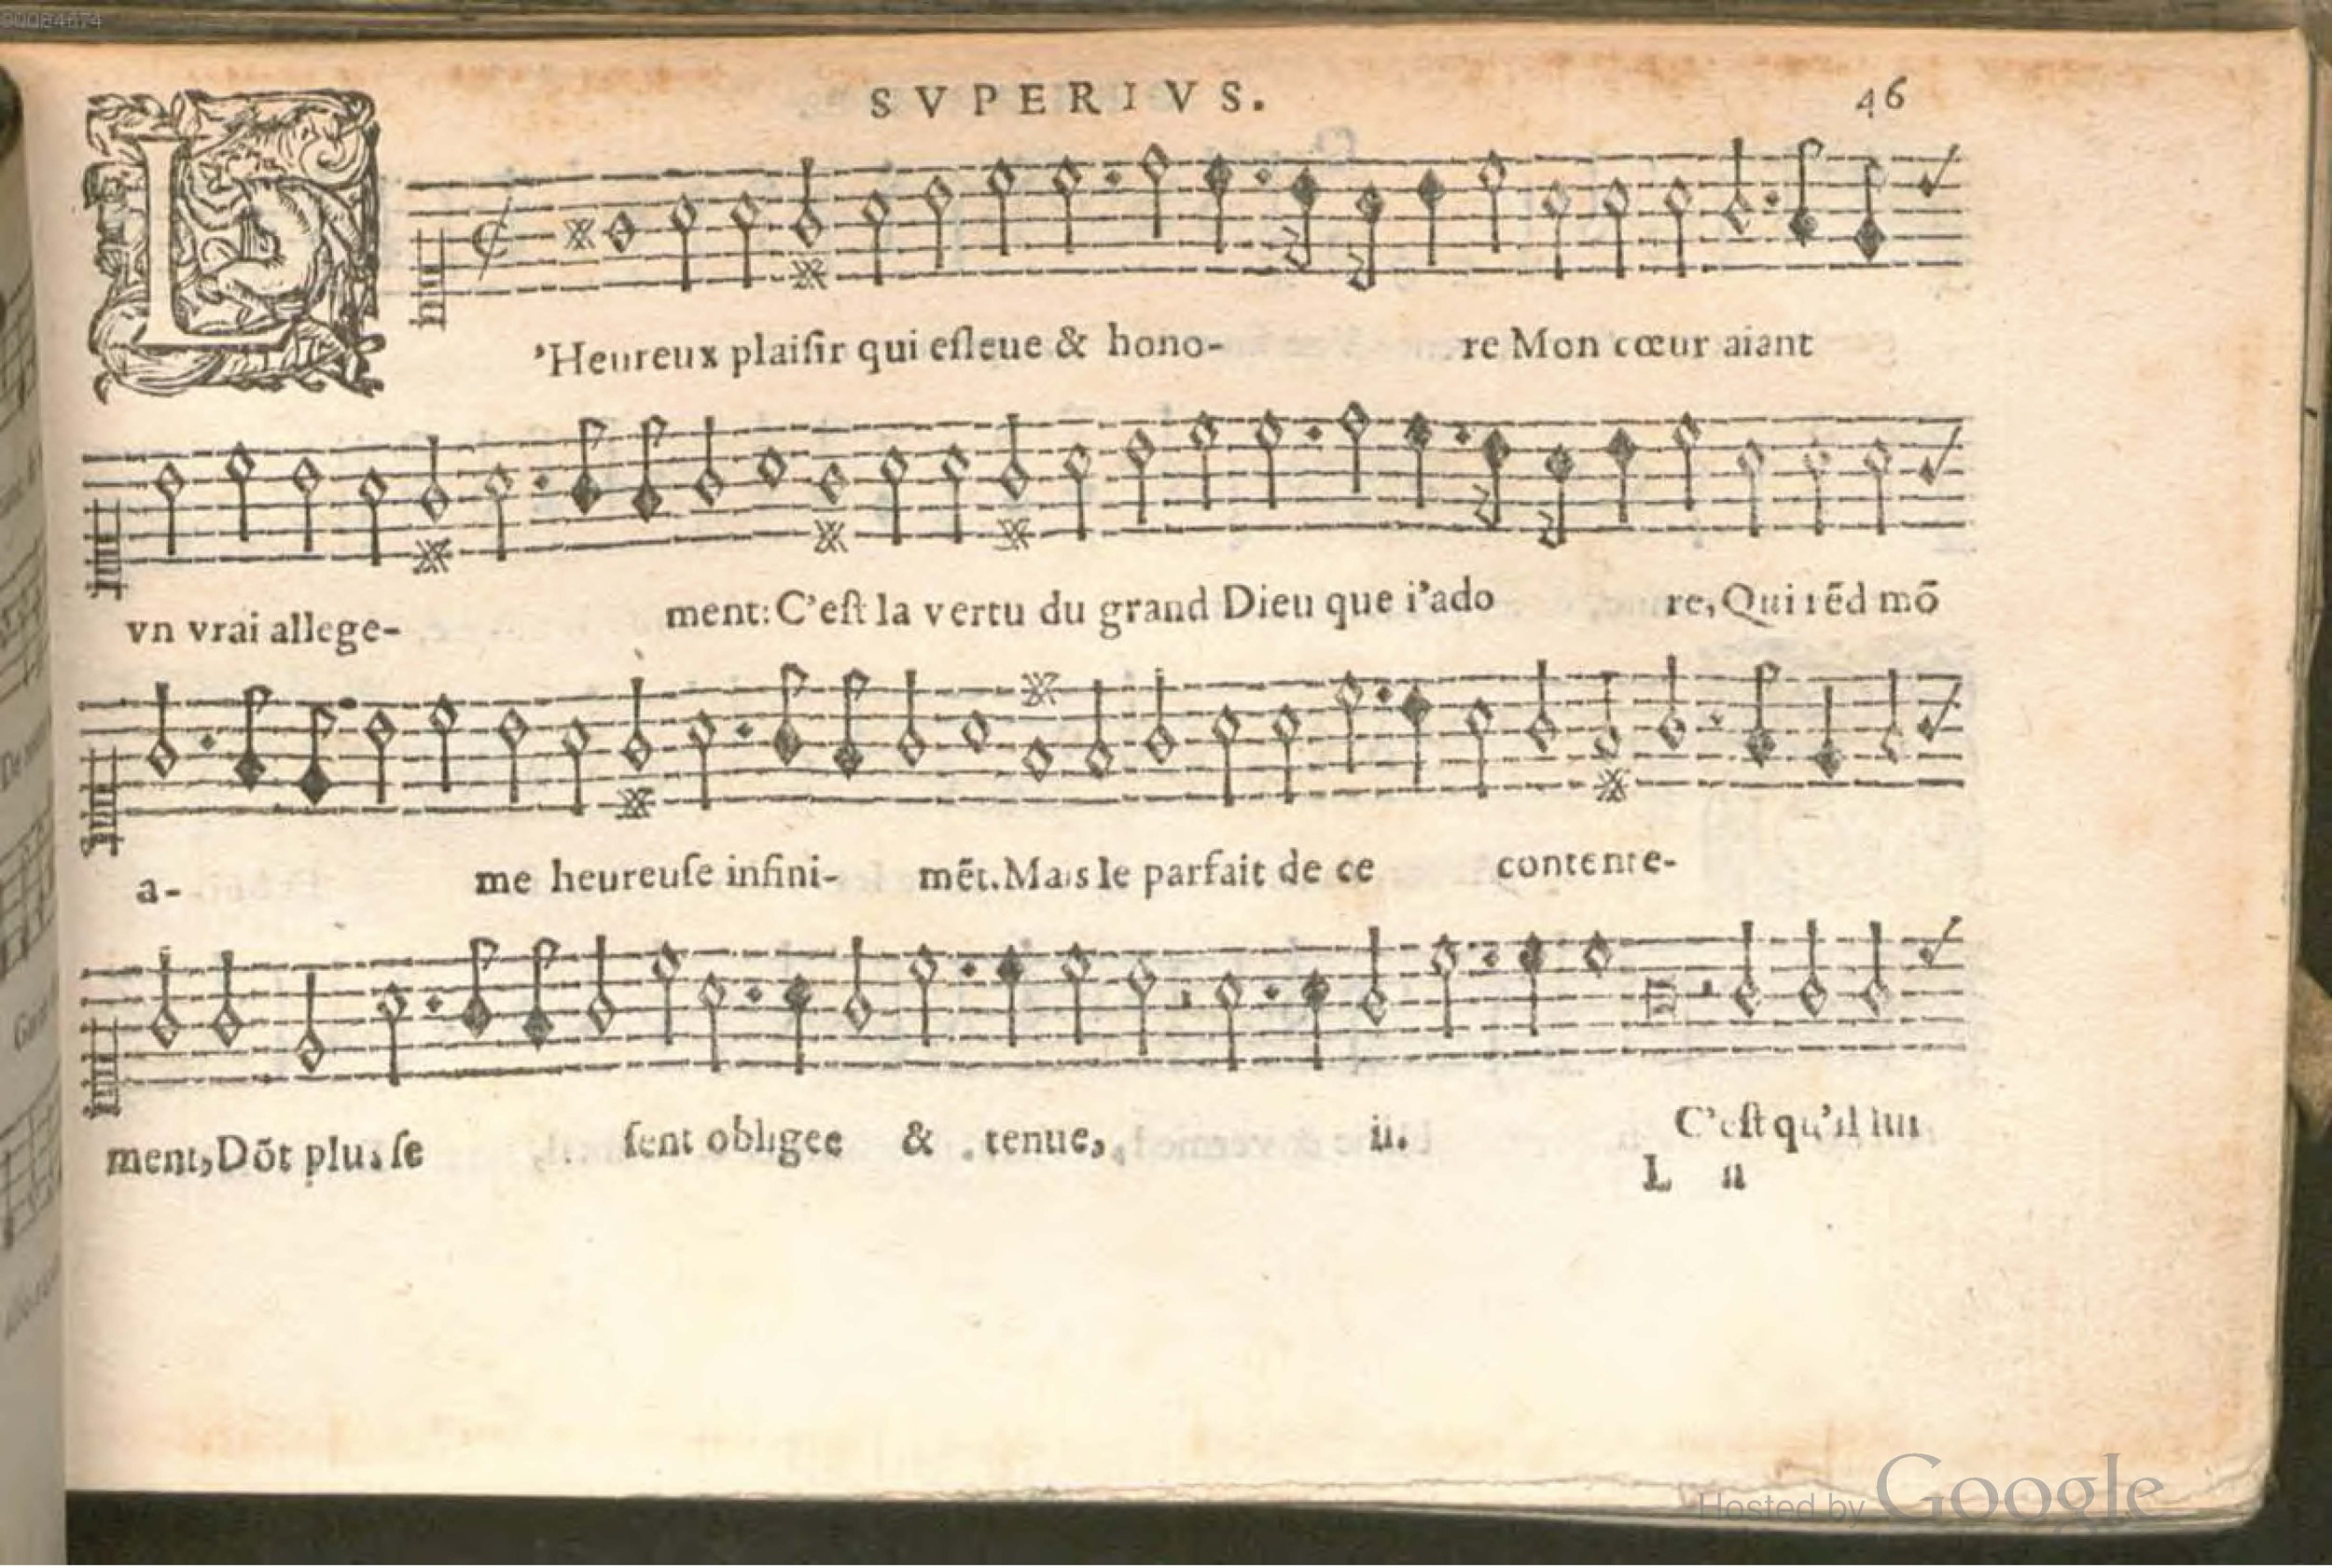 00084674
SVPERIVS.
46
L'Heureux plaiſir qui eſleue & hono- re Mon cœur aiant
vn vrai allege- ment: C'eſt la vertu du grand Dieu que i'ado re, Qui rēd mō
a- me heureuſe infini- mēt. Mais le parfait de ce contente-
ment, Dōt plus ſe ſent obligee & tenue, ii. C'eſt qu'il lui
L ii
Hosted by Google